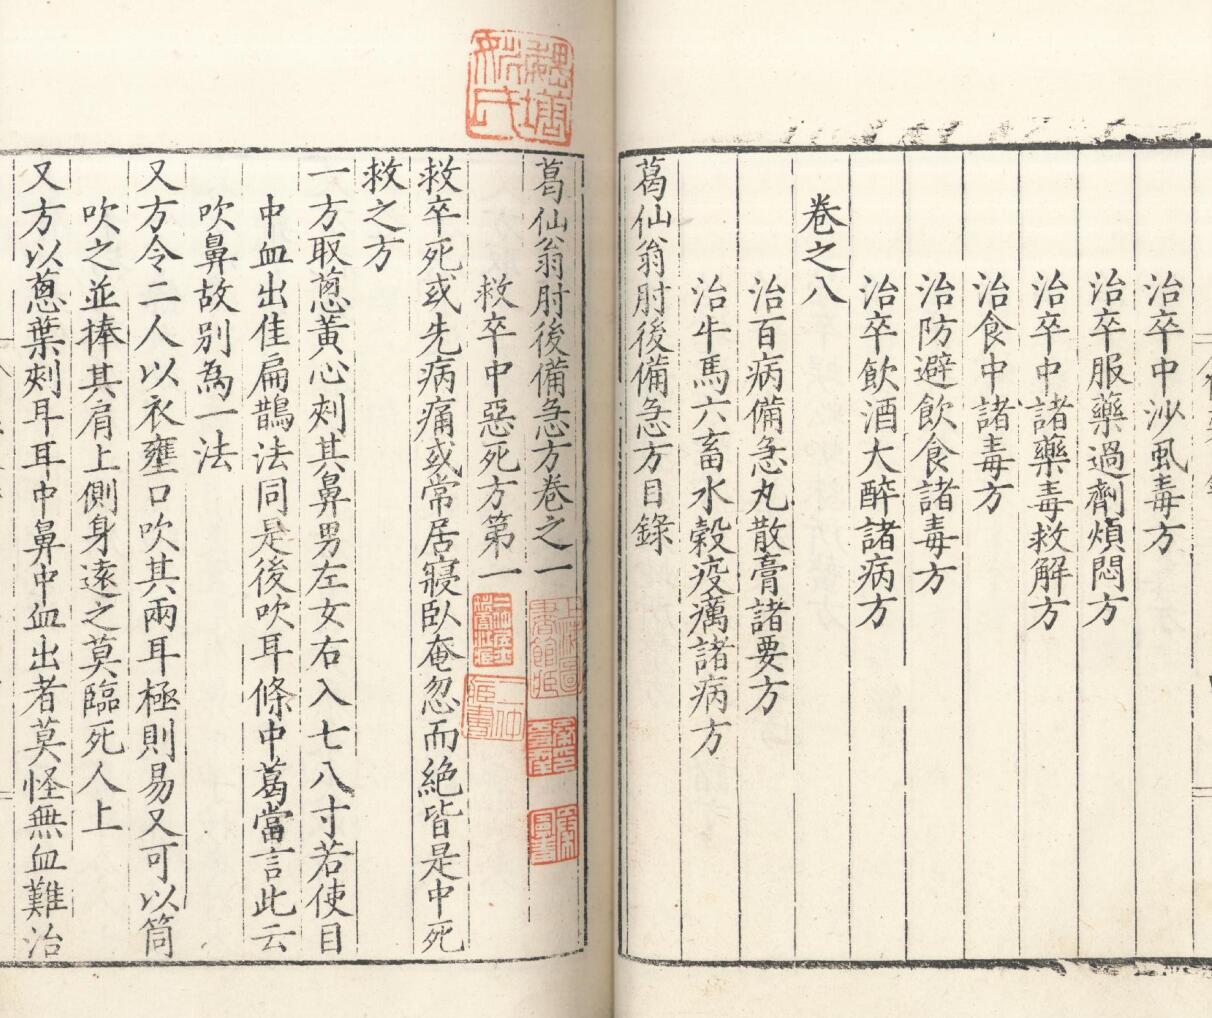 治卒中沙虱毒方
治卒服藥過劑煩悶方
治卒中諸藥毒救解方
治食中諸毒方
治防避飲食諸毒方
治卒飲酒大醉諸病方
卷之八
治百病備急丸散膏諸要方
治牛馬六畜水穀疫癘諸病方
葛仙翁肘後備急方目錄
葛仙翁肘後備急方卷之一
救卒中惡死方第一
救卒死或先病痛或常居寢臥奄忽而絕皆是中死
救之方
一方取蔥黃心刾其鼻男左女右入七八寸若使目
中血出佳扁鵲法同是後吹耳條中葛當言此云
吹鼻故別為一法
又方令二人以衣壅口吹其兩耳極則易又可以筒
吹之並捧其肩上側身遠之莫臨死人上
又方以蔥葉刾耳耳中鼻中血出者莫怪無血難治